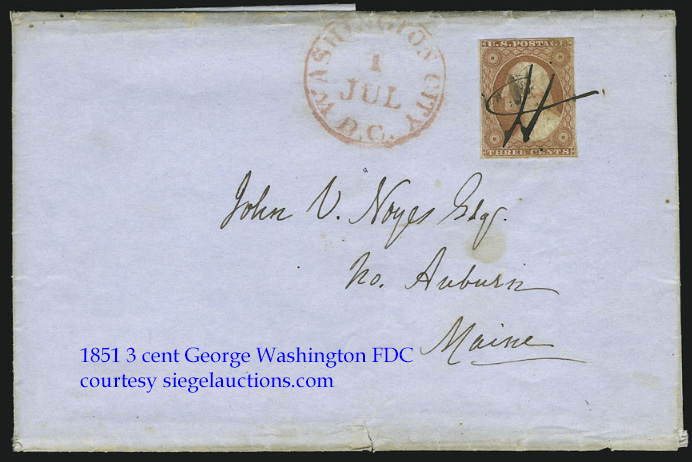 WASHINGTON CITY
1
JUL
D.C.
U.S. POSTAGE
THREE CENTS
John V. Noyes Esq.
No. Auburn
Maine
1851 3 cent George Washington FDC
courtesy siegelauctions.com